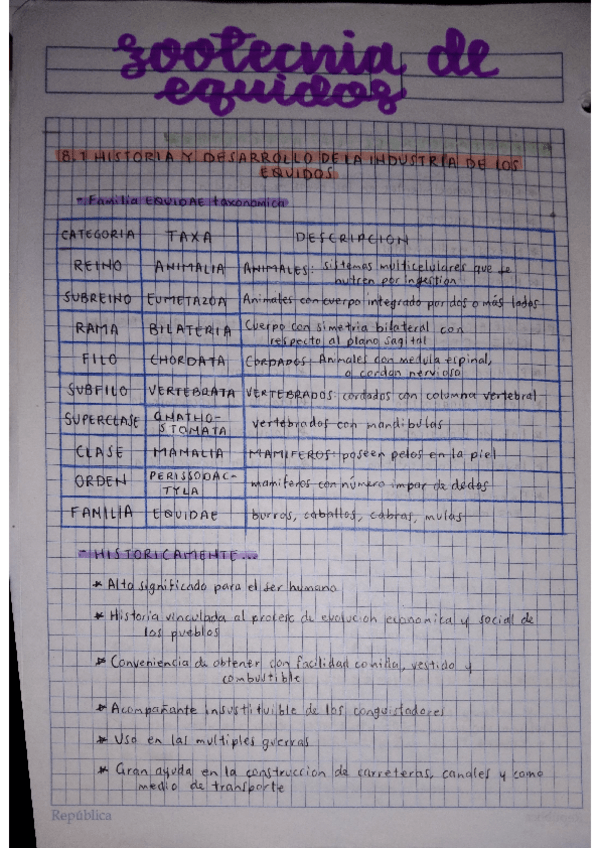 zootecnia de
equidos
8.1 HISTORIA Y DESARROLLO DE LA INDUSTRIA DE LOS
EQUIDOS
- Familia EQUIDAE taxonomica
CATEGORIA TAXA DESCRIPCION
REINO ANIMALIA ANIMALES: sistemas multicelulares que se
nutren por ingestion
SUBREINO EUMETAZOA Animales con cuerpo integrado por dos o más lados
RAMA BILATERIA Cuerpo con simetria bilateral con
respecto al plano sagital
FILO CHORDATA CORDADOS: Animales con medula espinal,
o cordon nervioso
SUBFILO VERTEBRATA VERTEBRADOS: cordados con columna vertebral
SUPERCLASE GNATHO-
STOMATA vertebrados con mandibulas
CLASE MAMALIA MAMIFEROS: poseen pelos en la piel
ORDEN PERISSODAC-
TYLA mamiferos con número impar de dedos
FAMILIA EQUIDAE burros, caballos, cabras, mulas
- HISTORICAMENTE...
* Alto significado para el ser humano
* Historia vinculada al proceso de evolucion economica y social de
los pueblos
* Conveniencia de obtener con facilidad comida, vestido y
combustible
* Acompañante insustituible de los conquistadores
* Uso en las multiples guerras
* Gran ayuda en la construccion de carreteras, canales y como
medio de transporte
República